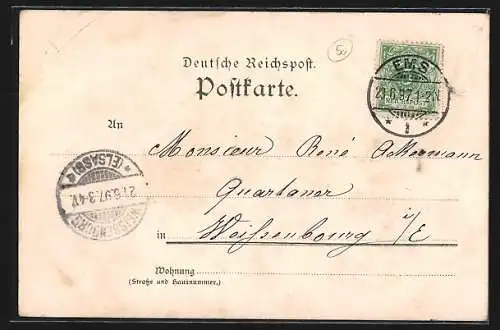 50
Deutsche Reichspost.
Postkarte.
EMS
21.6.97.1-2N
* 1 *
An
Monsieur René Ackermann
Quartaner
in Weissenbourg i/E
WEISSENBURG
21.6.97.3-4V.
* (ELSASS) *
Wohnung
(Straße und Hausnummer.)